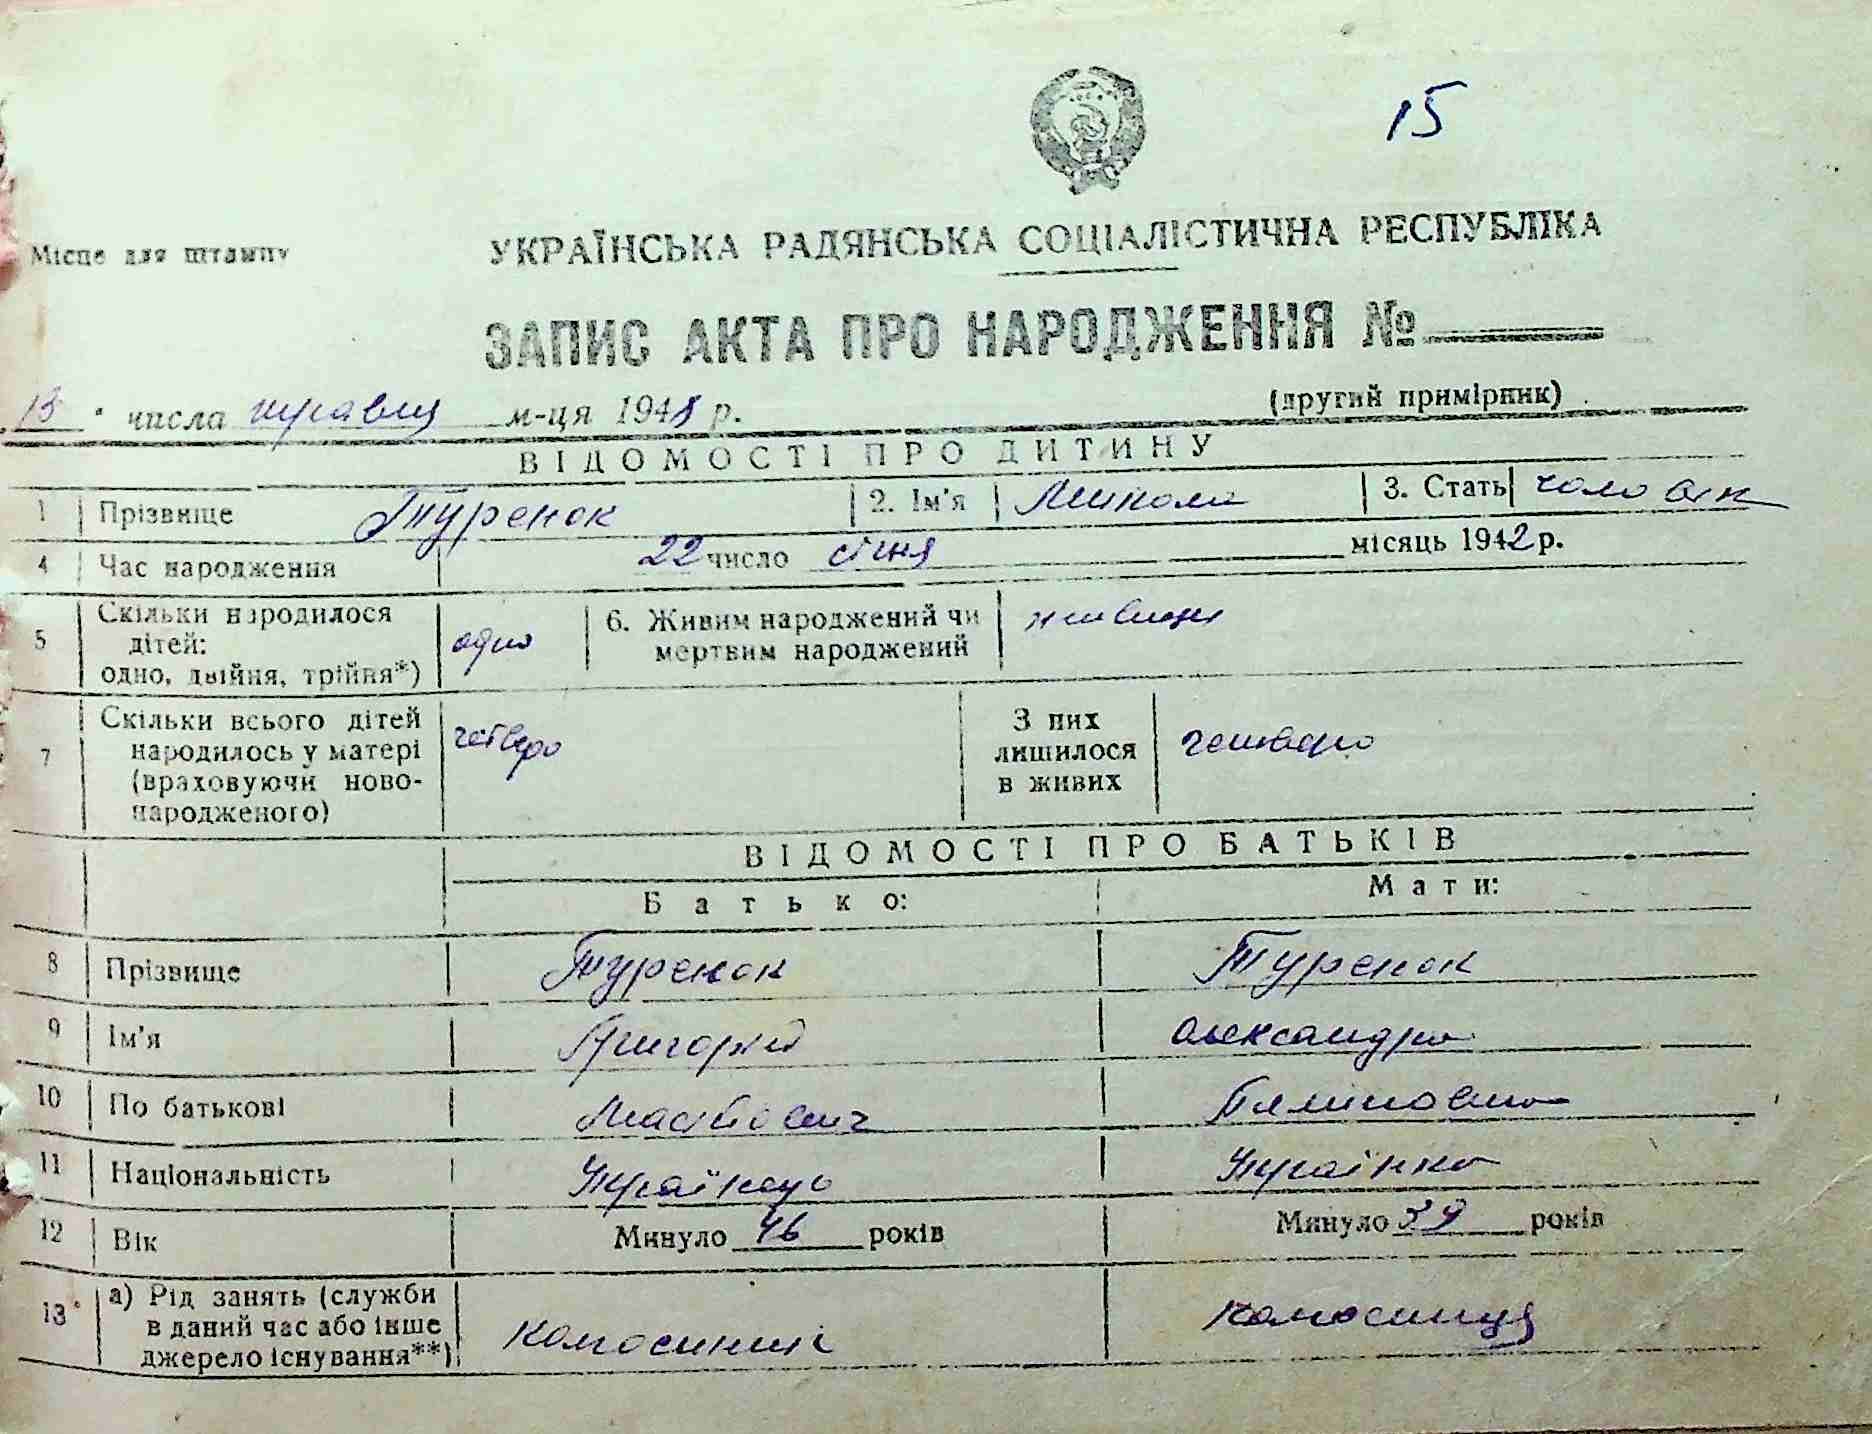 15
Місце для штампу
УКРАЇНСЬКА РАДЯНСЬКА СОЦІАЛІСТИЧНА РЕСПУБЛІКА
ЗАПИС АКТА ПРО НАРОДЖЕННЯ №
(другий примірник)
13 числа травня м-ця 1948 р.
ВІДОМОСТІ ПРО ДИТИНУ
1 Прізвище Туренок 2. Ім'я Микола 3. Стать чоловік
4 Час народження 22 число січня місяць 1942 р.
5 Скільки народилося дітей: одно, двійня, трійня*) одно 6. Живим народжений чи мертвим народжений живим
7 Скільки всього дітей народилось у матері (враховуючи ново-народженого) четверо З них лишилося в живих четверо
ВІДОМОСТІ ПРО БАТЬКІВ
Батько: Мати:
8 Прізвище Туренок Туренок
9 Ім'я Григорій Олександра
10 По батькові
11 Національність Українець Українка
12 Вік Минуло 46 років Минуло 39 років
13 а) Рід занять (служби в даний час або інше джерело існування**) Колгоспник колгоспниця